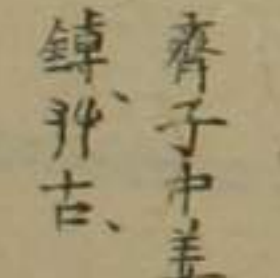 齊子中姜
鎛、𢎥古、